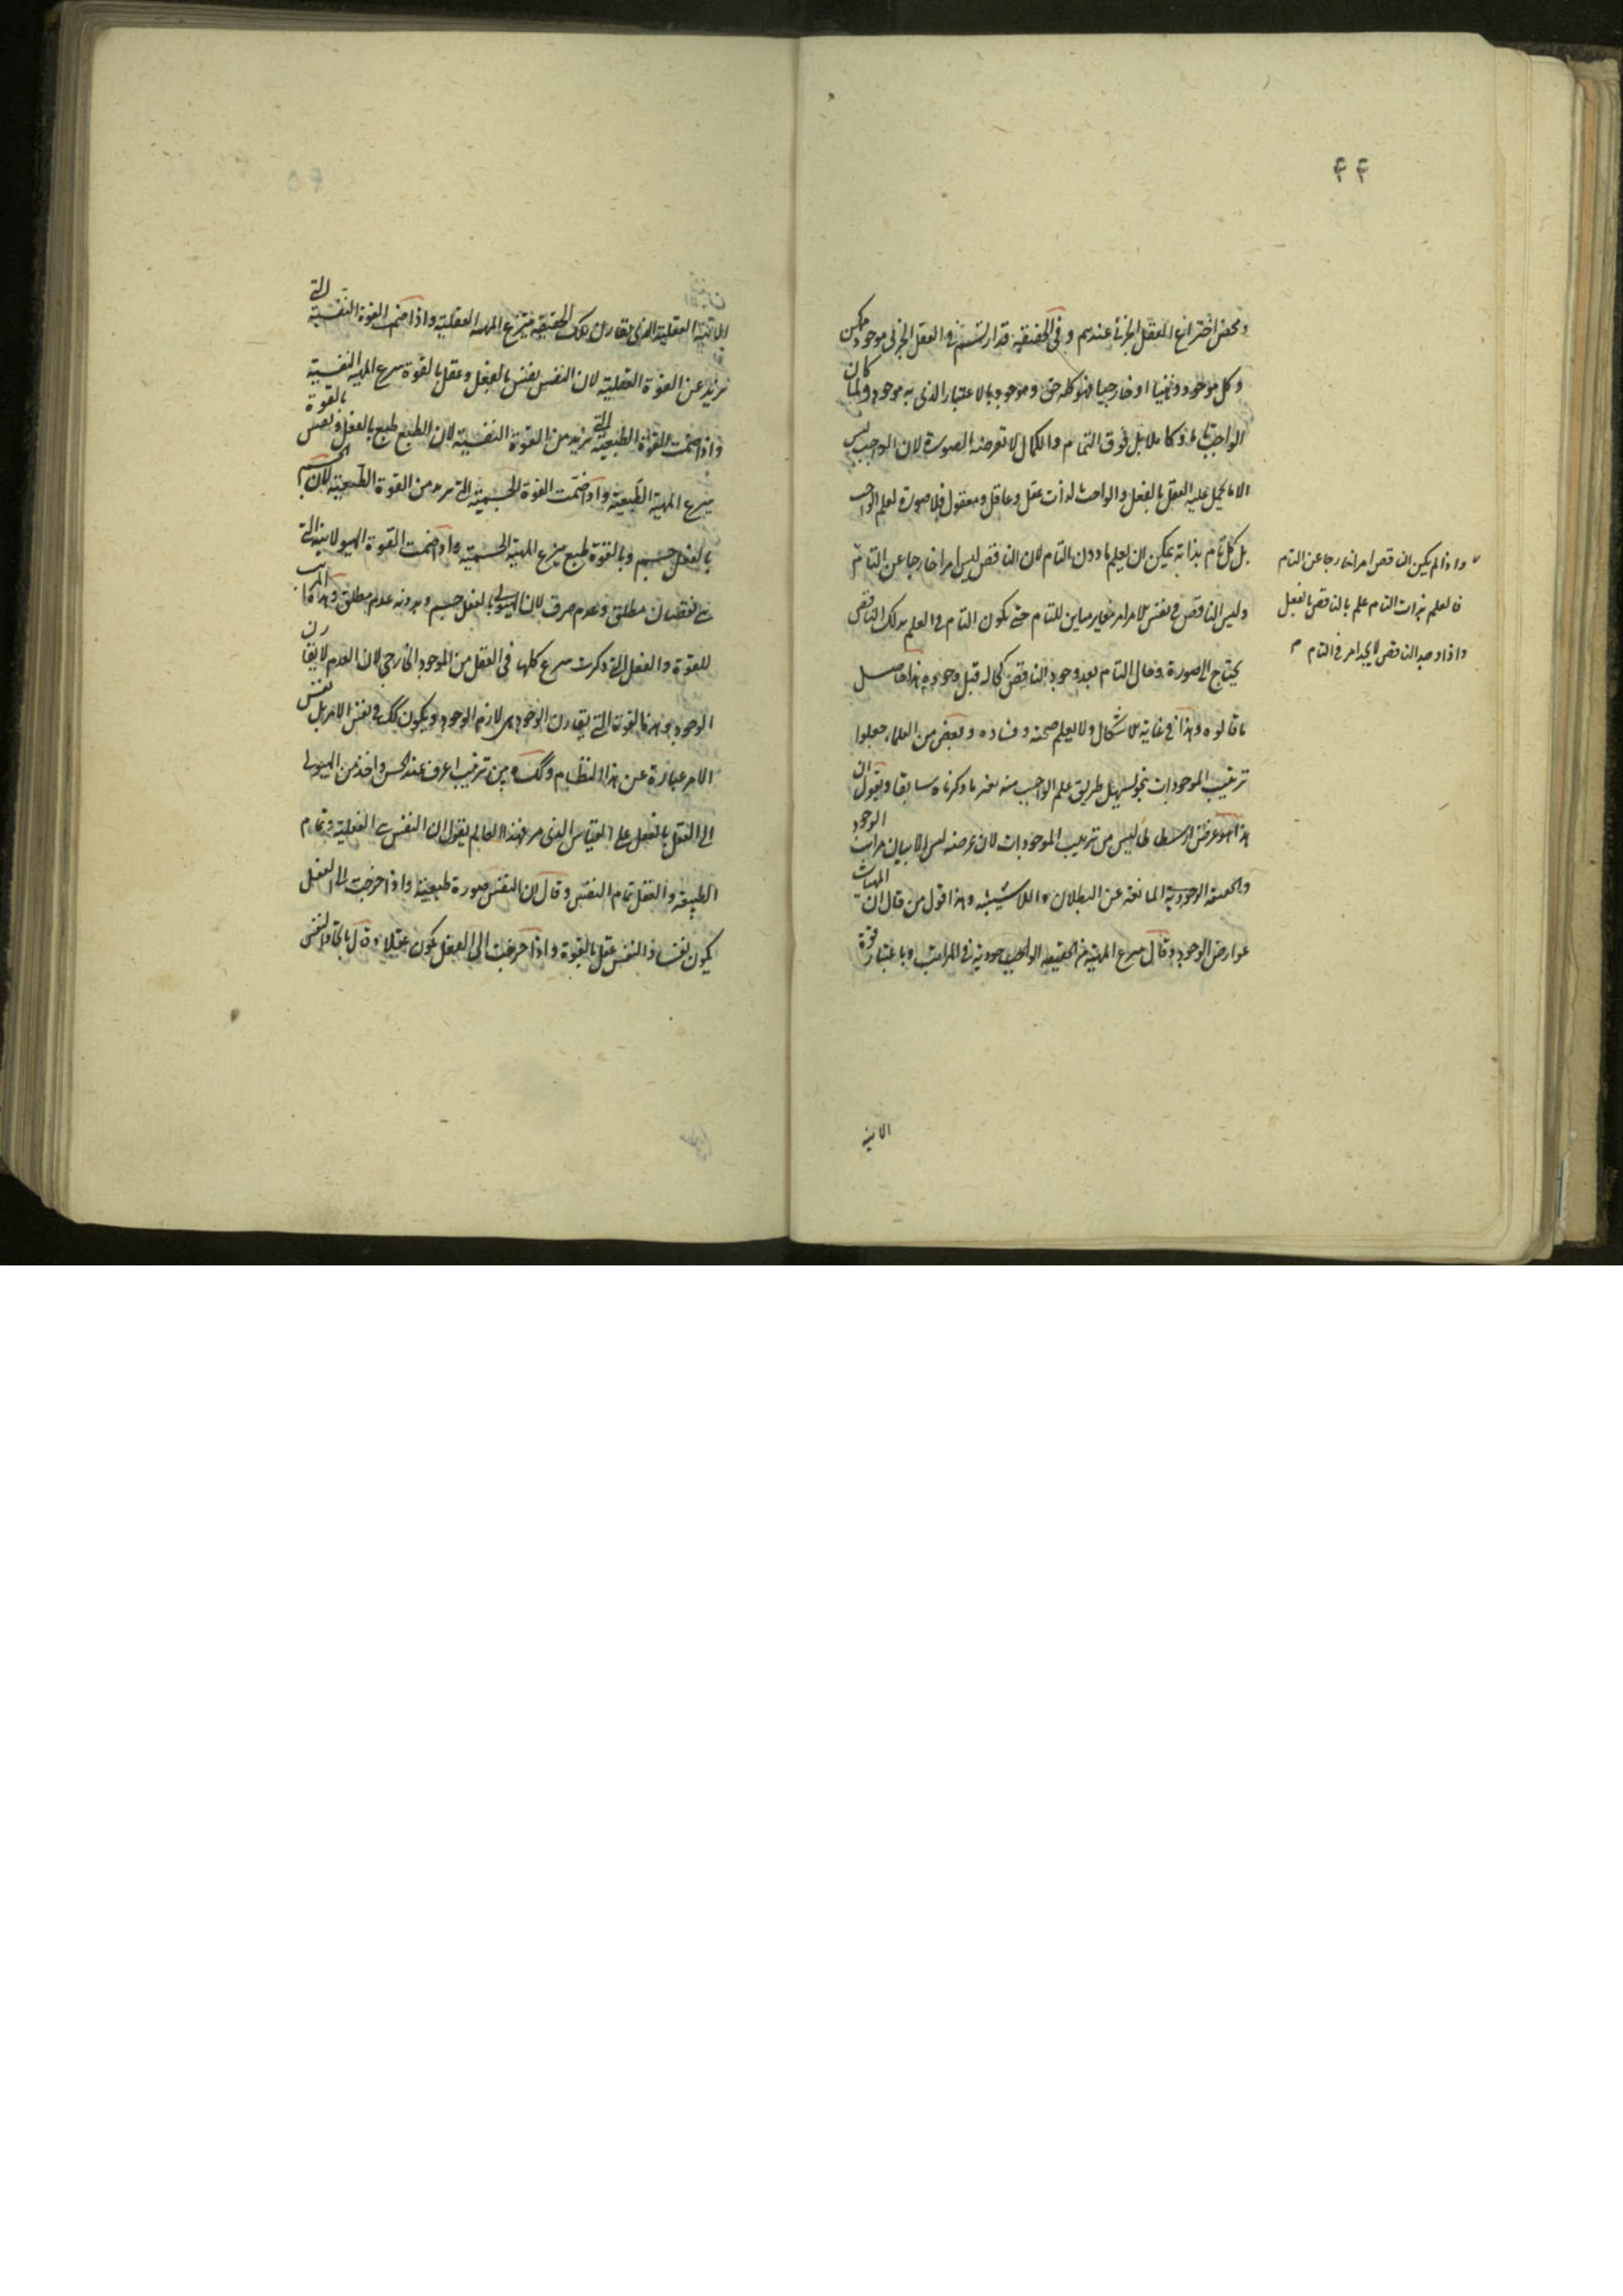 ۴۴
ومحض اختراعها العقل الجزئى عندهم وفى الحقيقة قد ارتسم فى العقل الجزئى موجود ممكن
وكل موجود ذهنيا او خارجيا فهو كله حق وموجود بالاعتبار الذى به موجود ولما كان
الواجب كاملا بل فوق التمام والكمال لا تعرضه الصورة لان الواجب ليس
الا ما يحمل عليه العقل بالفعل والواجب لذاته عقل وعاقل ومعقول فلا صورة لعلم الواجب
بل كل تام بذاته يمكن ان يعلم ما دون التام لان الناقص ليس امرا خارجا عن التام
وليس الناقص فى نفس الامر امر مغاير مباين للتام حتى يكون التام فى العلم بذلك الناقص
يحتاج الى صورة وحال التام بعد وجود الناقص كحاله قبل وجوده هذا حاصل
ما قالوه وهذا فى غاية الاشكال ولا يعلم صحته وفساده وبعض من العلماء جعلوا
ترتيب الموجودات بنحو يسهل طريق علم الواجب منه بغير ما ذكرناه سابقا ويقول ان
هذا هو غرض ارسطاطاليس من ترتيب الموجودات لان غرضه ليس الا بيان مراتب الوجود
والحقيقة الوجودية المانعة عن البطلان واللاشيئية وهذا قول من قال ان المهيات
عوارض الوجود وقال ينتزع المهية من الحقيقة الوجودية فى المراتب وباعتبار قوة
واذا لم يكن الناقص امرا خارجا عن التام
فالعلم بذات التام علم بالناقص بالفعل
واذا وجد الناقص لا يجد امر فى التام
الانية
العقلية الذى يقارن تلك الحقيقة ينتزع المهية العقلية واذا ضم القوة النفسية التى
تزيد عن القوة العقلية لان النفس نفس بالفعل وعقل بالقوة ينتزع المهية النفسية
واذا ضمت القوة الطبيعية التى تزيد من القوة النفسية لان الطبع طبع بالفعل ونفس بالقوة
ينتزع المهية الطبيعية واذا ضمت القوة الجسمية التى تزيد من القوة الطبيعية لان الجسم
بالفعل جسم وبالقوة طبع ينتزع المهية الجسمية واذا ضمت القوة الهيولانية التى
هى نقصان مطلق وعدم صرف لان الهيولى بالفعل جسم وبدونه عدم مطلق وهذه المراتب
للقوة والفعل التى ذكرت ينتزع كلها فى العقل من الموجود الخارجى لان العدم لا يقارن
الوجود وهذه القوة التى يقارن الوجود هى لازم الوجود ويكون كك فى نفس الامر بل نفس
الامر عبارة عن هذا النظام وكك وبين ترتيب اعرف عند الحس واخذ من الهيولى
الى العقل بالفعل على القياس الذى مر فهذا العالم يقول ان النفس الفعلية وتمام
الطبيعة والعقل تمام النفس وقال ان النفس صورة طبيعية واذا خرجت الى الفعل
يكون نفسا والنفس عقل بالقوة واذا خرجت الى الفعل يكون عقلا وقال باتحاد النفس